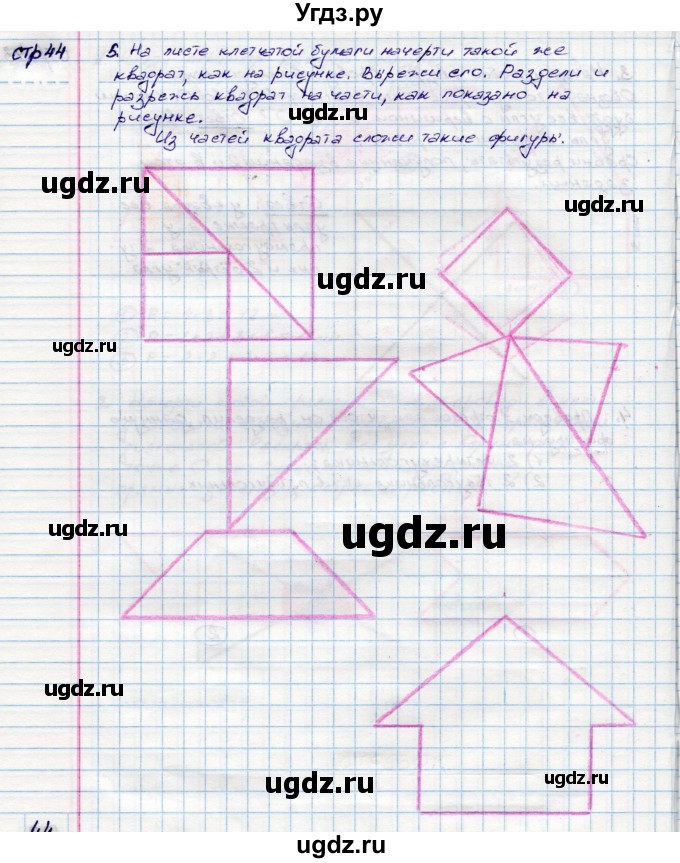 Угдз.ру
стр 44
5. На листе клетчатой бумаги начерти такой же
квадрат, как на рисунке. Вырежи его. Раздели и
разрежь квадрат на части, как показано на
рисунке.
Из частей квадрата сложи такие фигуры.
ugdz.ru
ugdz.ru
ugdz.ru
ugdz.ru
ugdz.ru
ugdz.ru
ugdz.ru
ugdz.ru
ugdz.ru
ugdz.ru
44
ugdz.ru